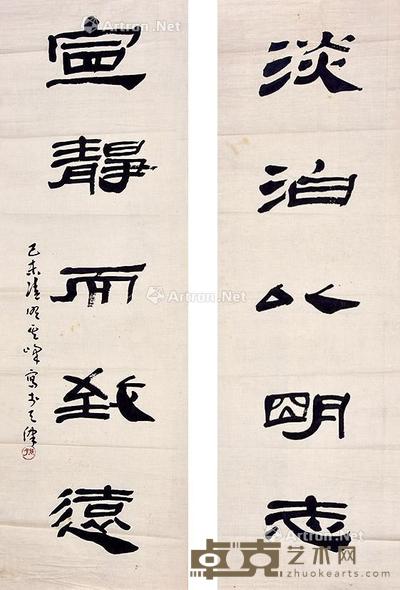 淡泊以明志
寧靜而致遠
己未清明雲峰寫於天津
Artron.Net
Artron.Net
Artron.Net
Artron.Net
卓克艺术网
zhuokearts.com